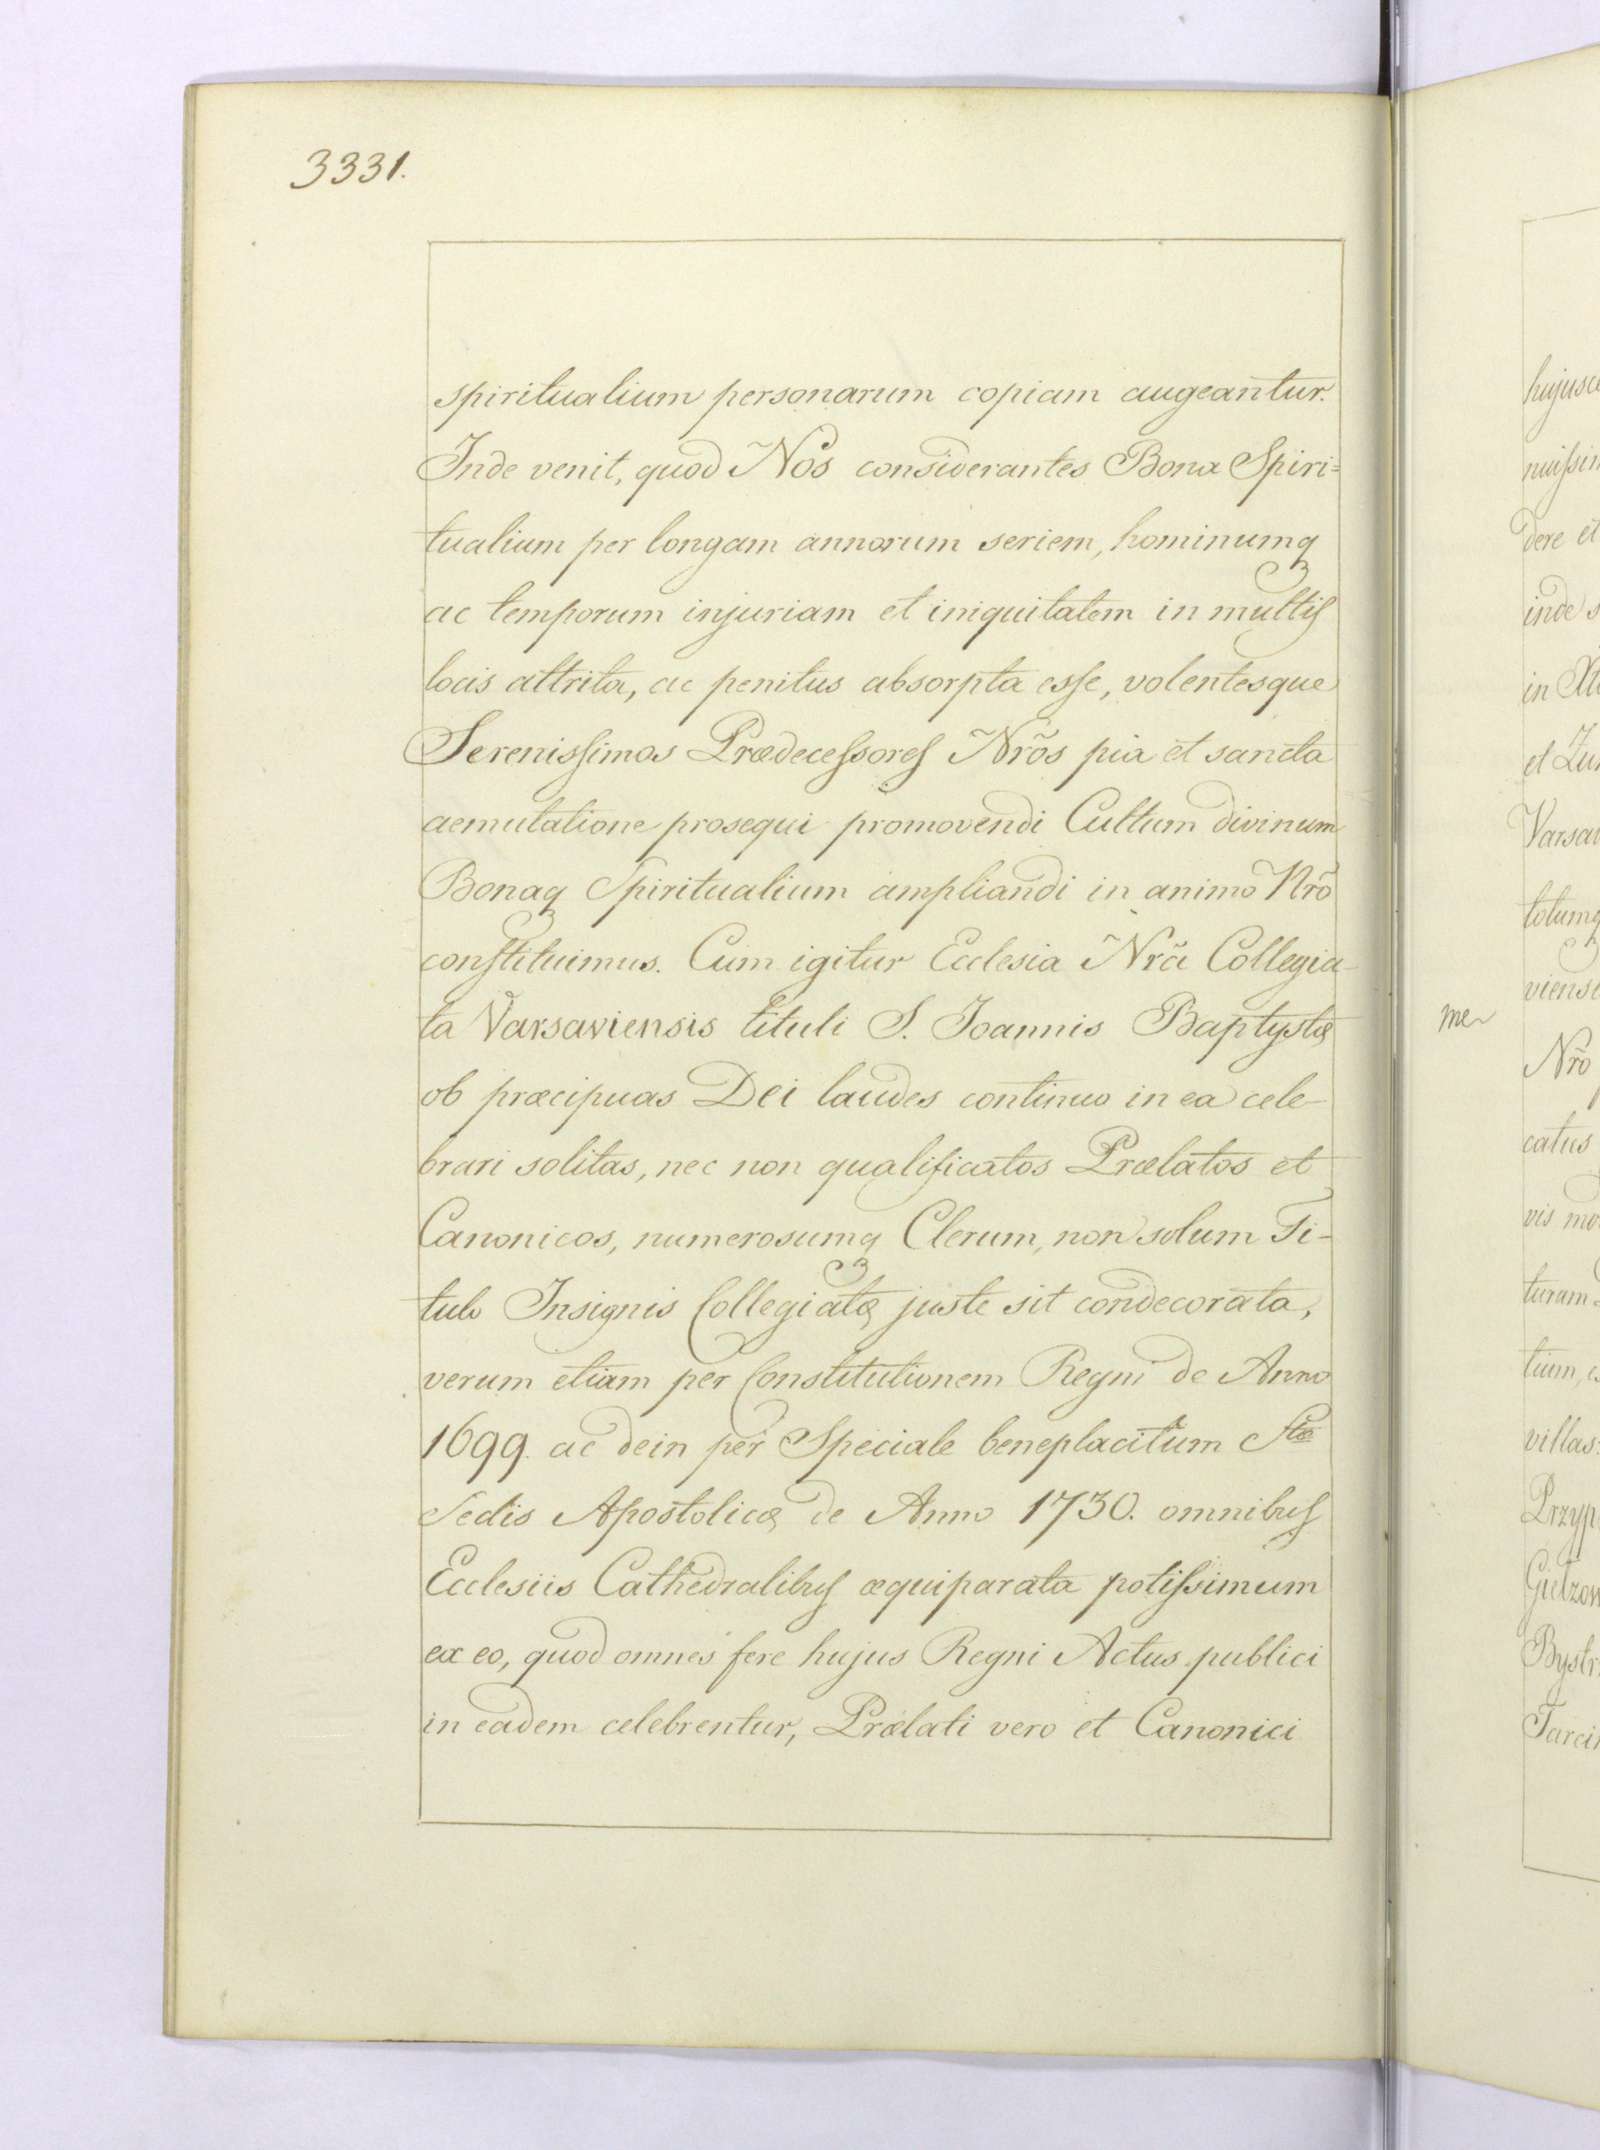 3331.
spiritualium personarum copiam augeantur.
Inde venit, quod Nos considerantes Bona Spiri=
tualium per longam annorum seriem, hominumq
ac temporum injuriam et iniquitatem in multis
locis attrita, ac penitus absorpta esse, volentesque
Serenissimos Prædecessores Nrõs pia et sancta
aemulatione prosequi promovendi Cultum divinum
Bonaq Spiritualium ampliandi in animo Nrõ
constituimus. Cum igitur Ecclesia Nrã Collegia-
ta Varsaviensis tituli S. Joannis Baptystæ
ob præcipuas Dei laudes continuo in ea cele-
brari solitas, nec non qualificatos Prælatos et
Canonicos, numerosumq Clerum, non solum Ti-
tulo Insignis Collegiatæ juste sit condecorata,
verum etiam per Constitutionem Regni de Anno
1699. ac dein per Speciale beneplacitum Stæ
Sedis Apostolicæ de Anno 1730. omnibus
Ecclesiis Cathedralibus æquiparata potissimum
ex eo, quod omnes fere hujus Regni Actus publici
in eadem celebrentur, Prælati vero et Canonici
dere et
inde s
in
et
Varsav
totumq
viense
me
Nrõ
catus
vis mo
turam
tium,
villas:
Przyp
Bystr
Tarci